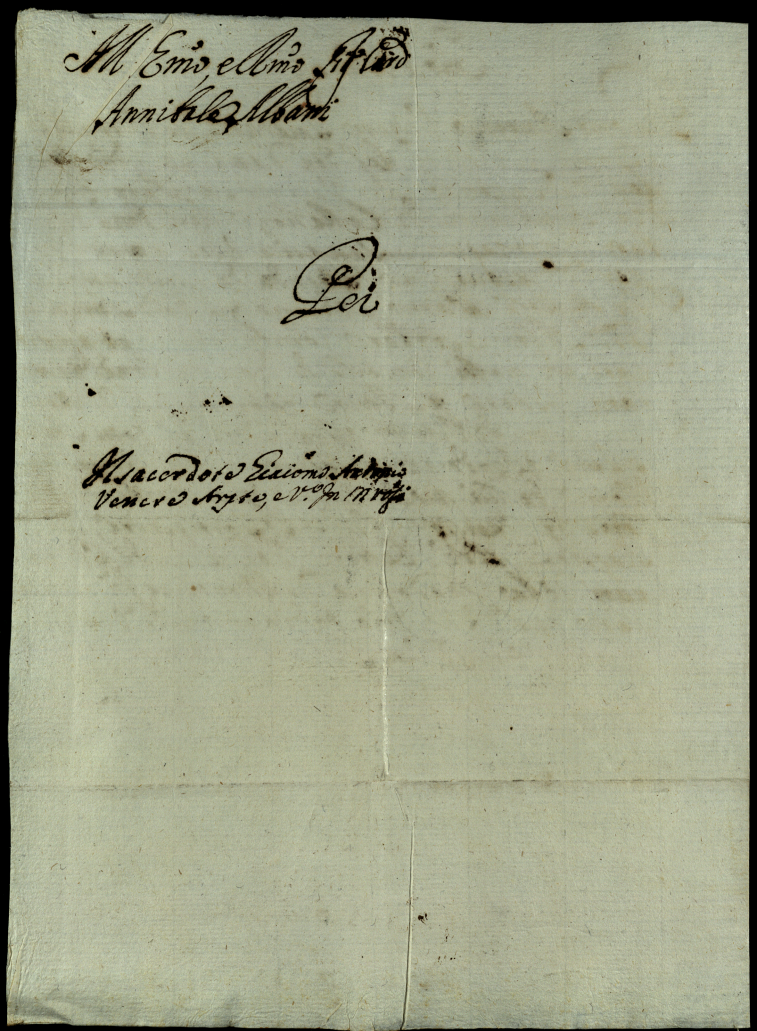 All Emo, e Rmo Sig Card
Annibale Albani
Per
Il sacerdote Giacomo Antonio
Venere Arpte, e V.o In